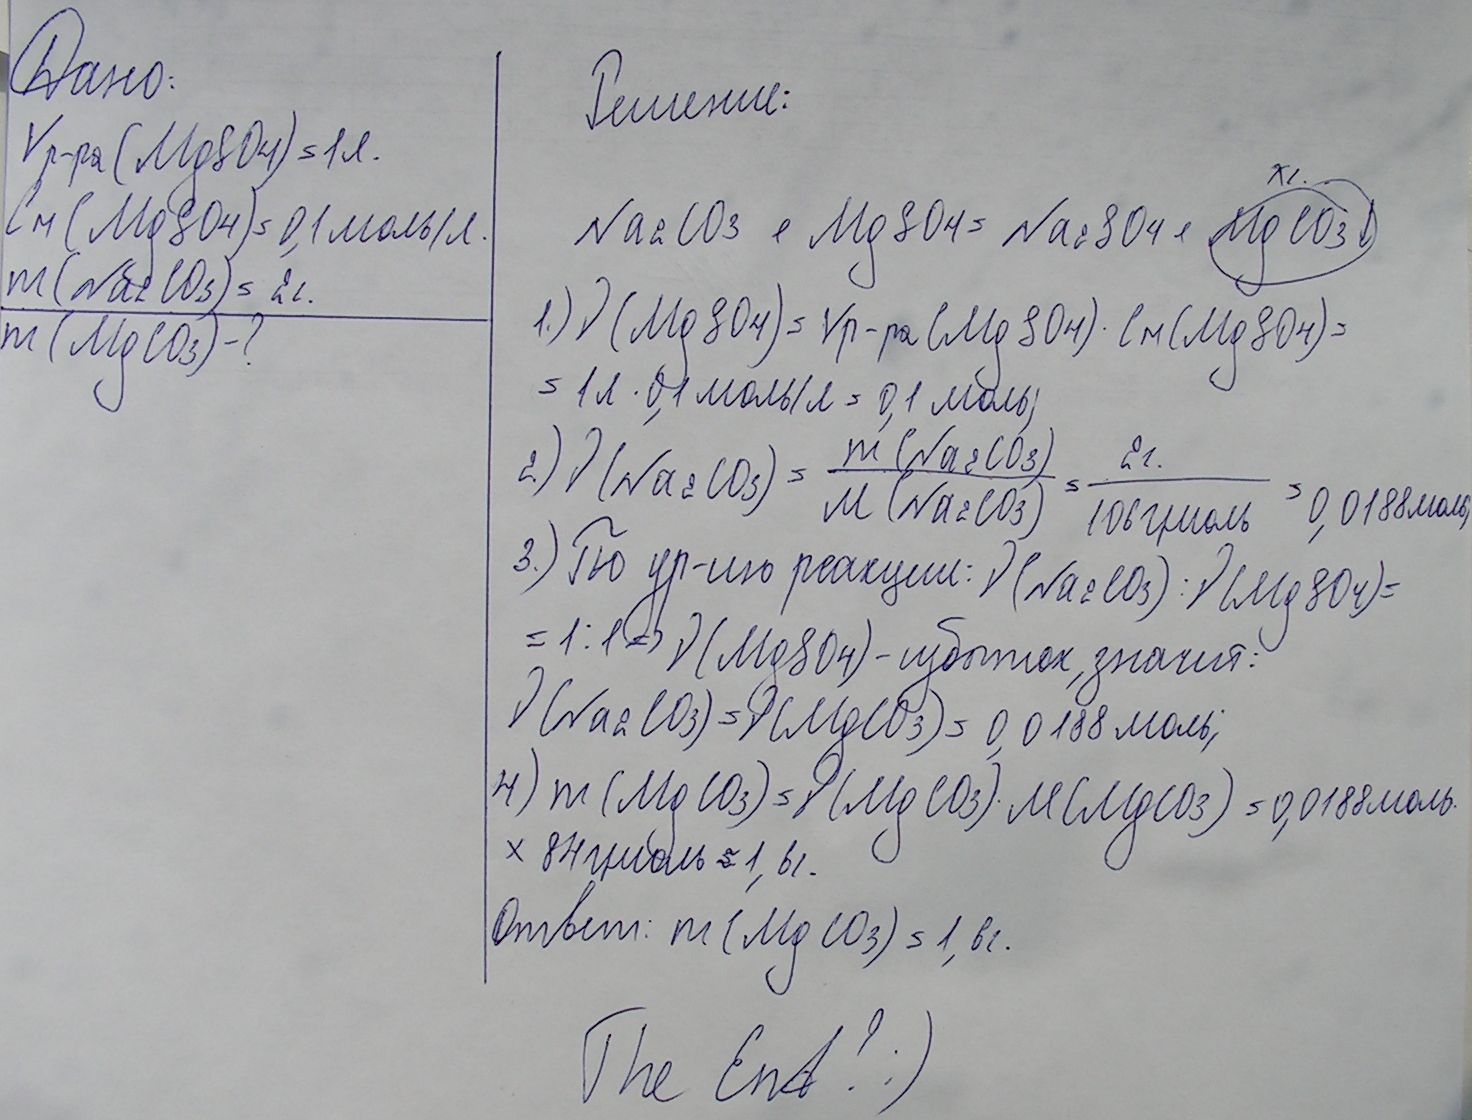 Дано:
Vр-ра(MgSO4)=1л.
См(MgSO4)=0,1моль/л.
m(Na2CO3)=2г.
m(MgCO3)-?
Решение:
xг.
Na2CO3 + MgSO4= Na2SO4+ MgCO3↓
1.) ν(MgSO4)=Vр-ра(MgSO4)·См(MgSO4)=
=1л·0,1моль/л=0,1 моль;
2.) ν(Na2CO3)= m(Na2CO3)/M(Na2CO3) = 2г./106г/моль =0,0188моль;
3.) По ур-ию реакции: ν(Na2CO3):ν(MgSO4)=
=1:1=> ν(MgSO4)-избыток,значит:
ν(Na2CO3)=ν(MgCO3)=0,0188моль;
4) m(MgCO3)=ν(MgCO3)·M(MgCO3)=0,0188моль·
×84г/моль≈1,6г.
Ответ: m(MgCO3)=1,6г.
The End!:)